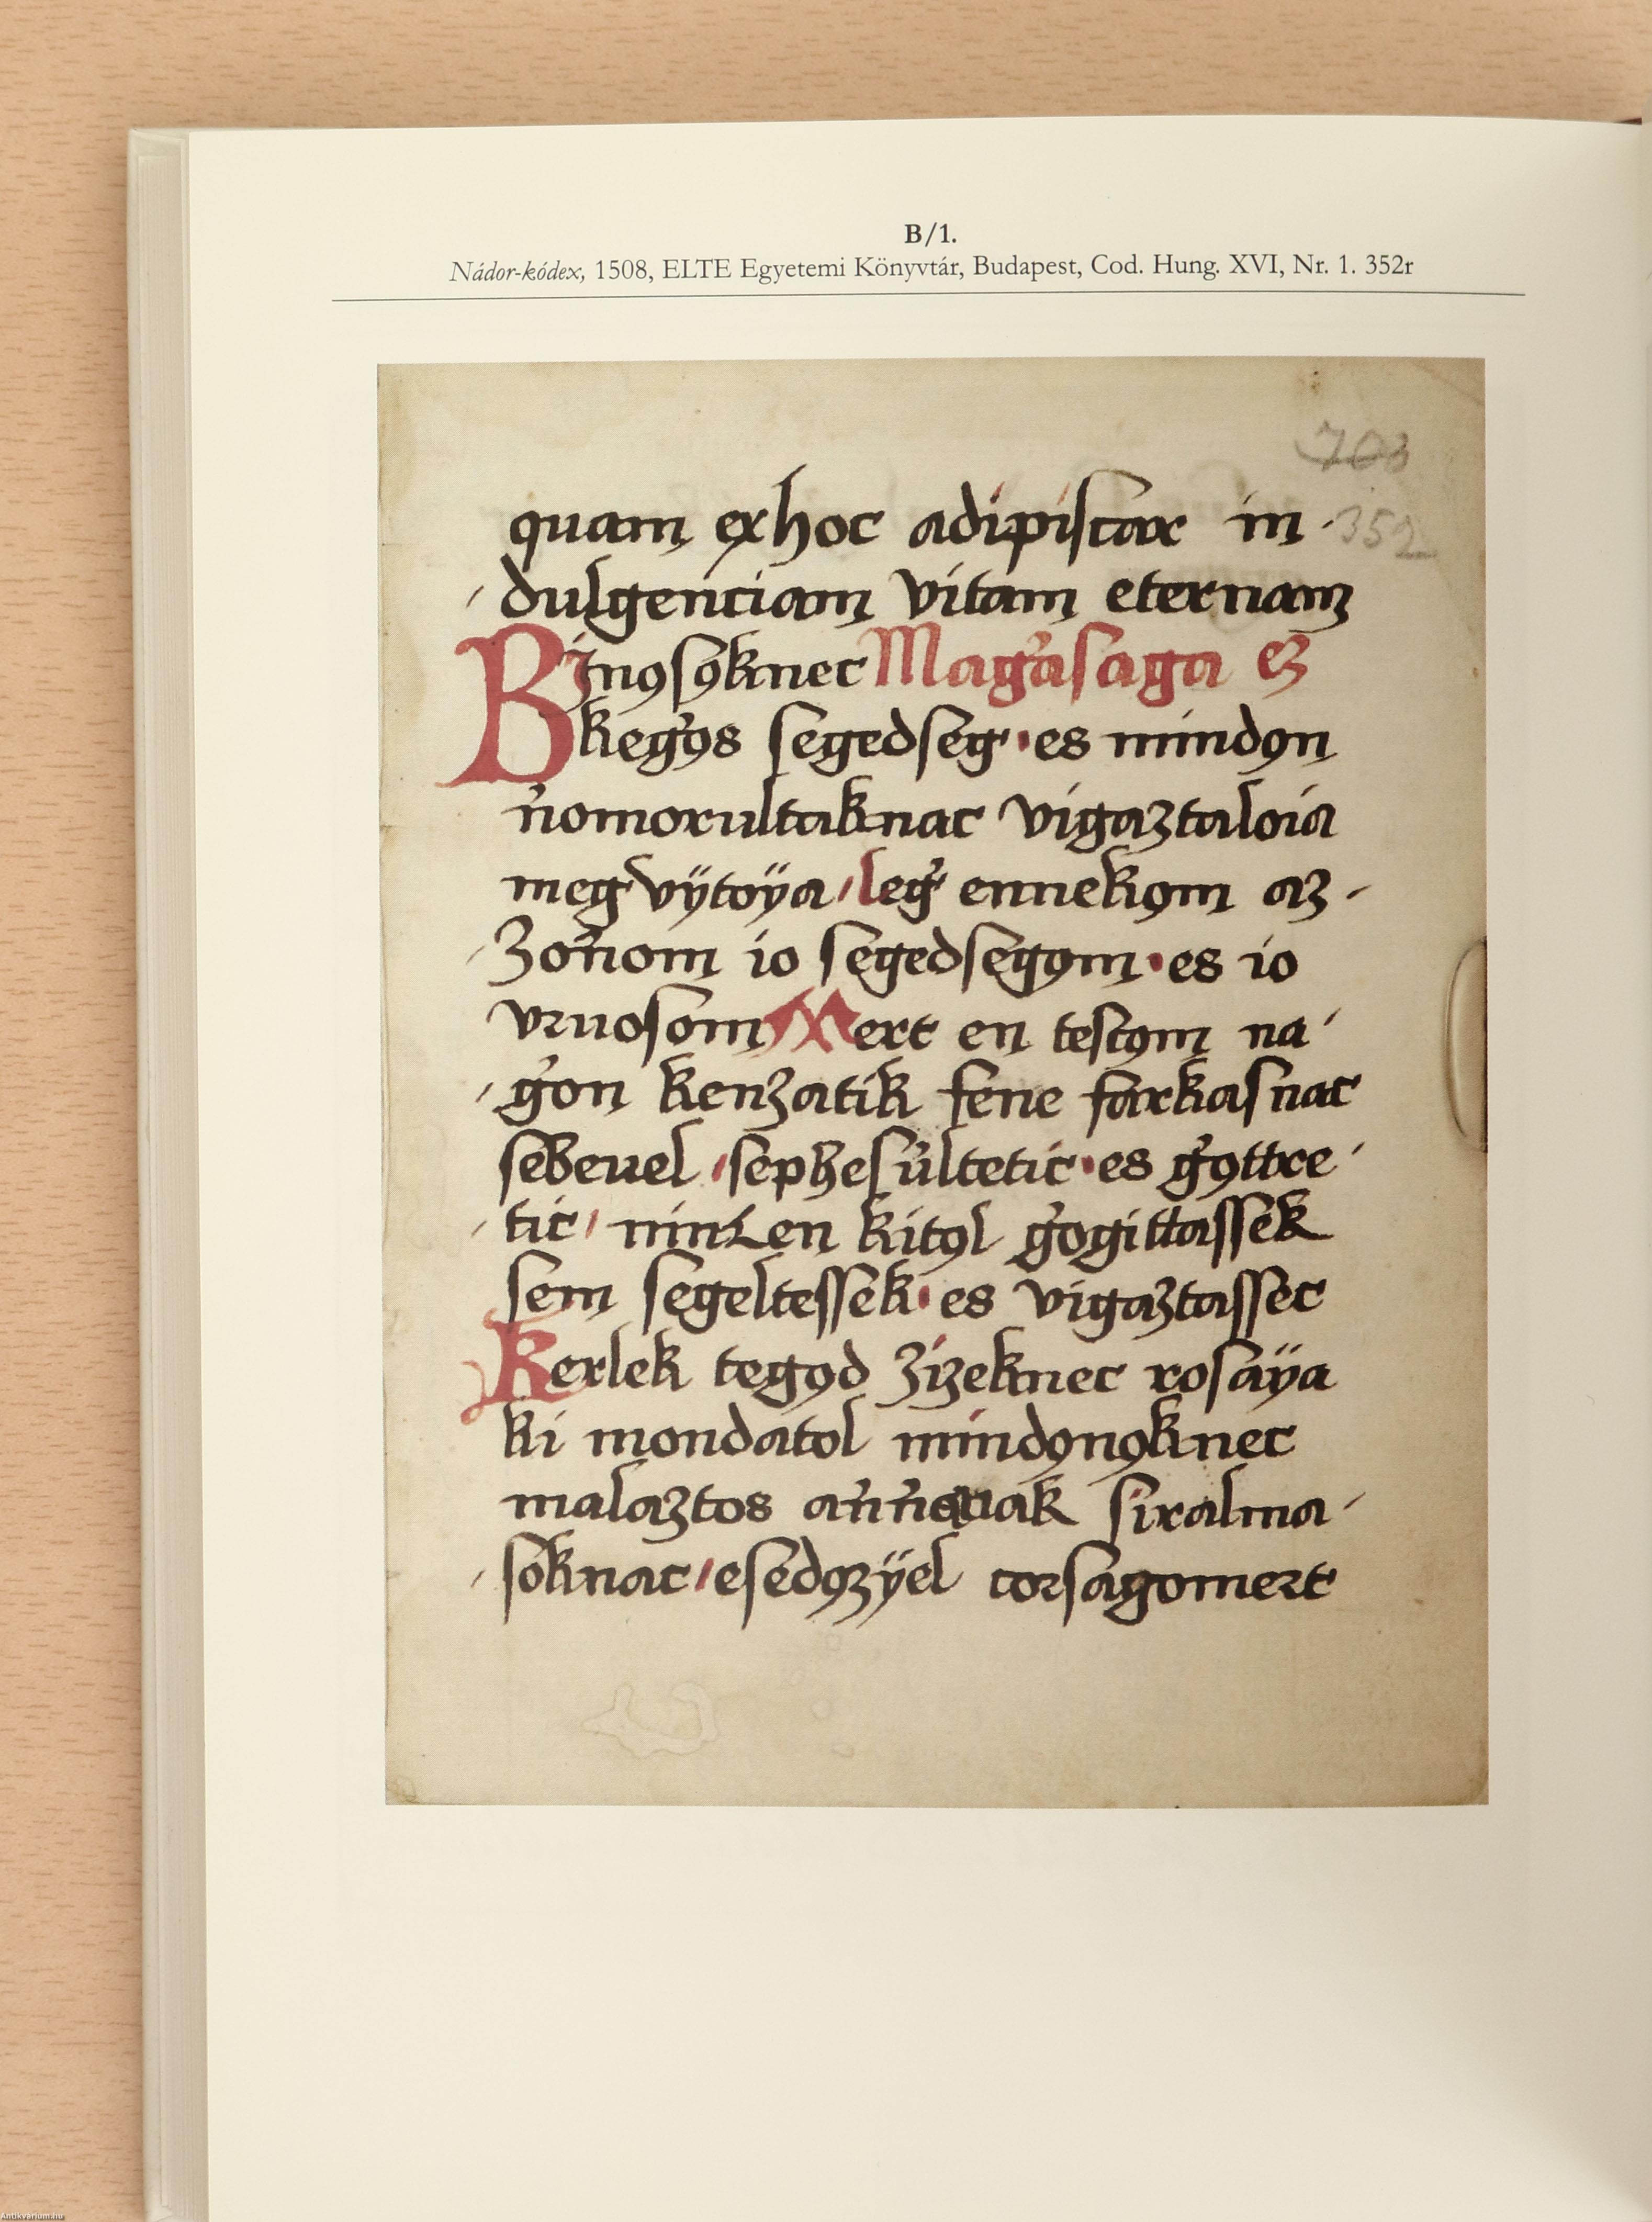 B/1.
Nádor-kódex, 1508, ELTE Egyetemi Könyvtár, Budapest, Cod. Hung. XVI, Nr. 1. 352r
703
quam exhoc adipiscar in
352
dulgenciam vitam eternam
Binǫsǫknec Magasaga ez
kegǫs segedseg es mindǫn
ńomorultaknac vigaztaloia
meg vÿtoÿa / leǵ ennekǫm az
zońom io segedsegǫm es io
vruosom Mert en testǫm na
ǵon kenzatik fene farkasnac
sebeuel / sephesúltetic es ǵǫttre
tic / ninLen kitǫl ǵogittassek
sem segeltessek es vigaztassec
Kerlek tegǫd zizeknec rosaÿa
ki mondatol mindǫnǫknec
malaztos ańńauak siralma
soknac / esedǫzÿel corsagomert
Antikvarium.hu